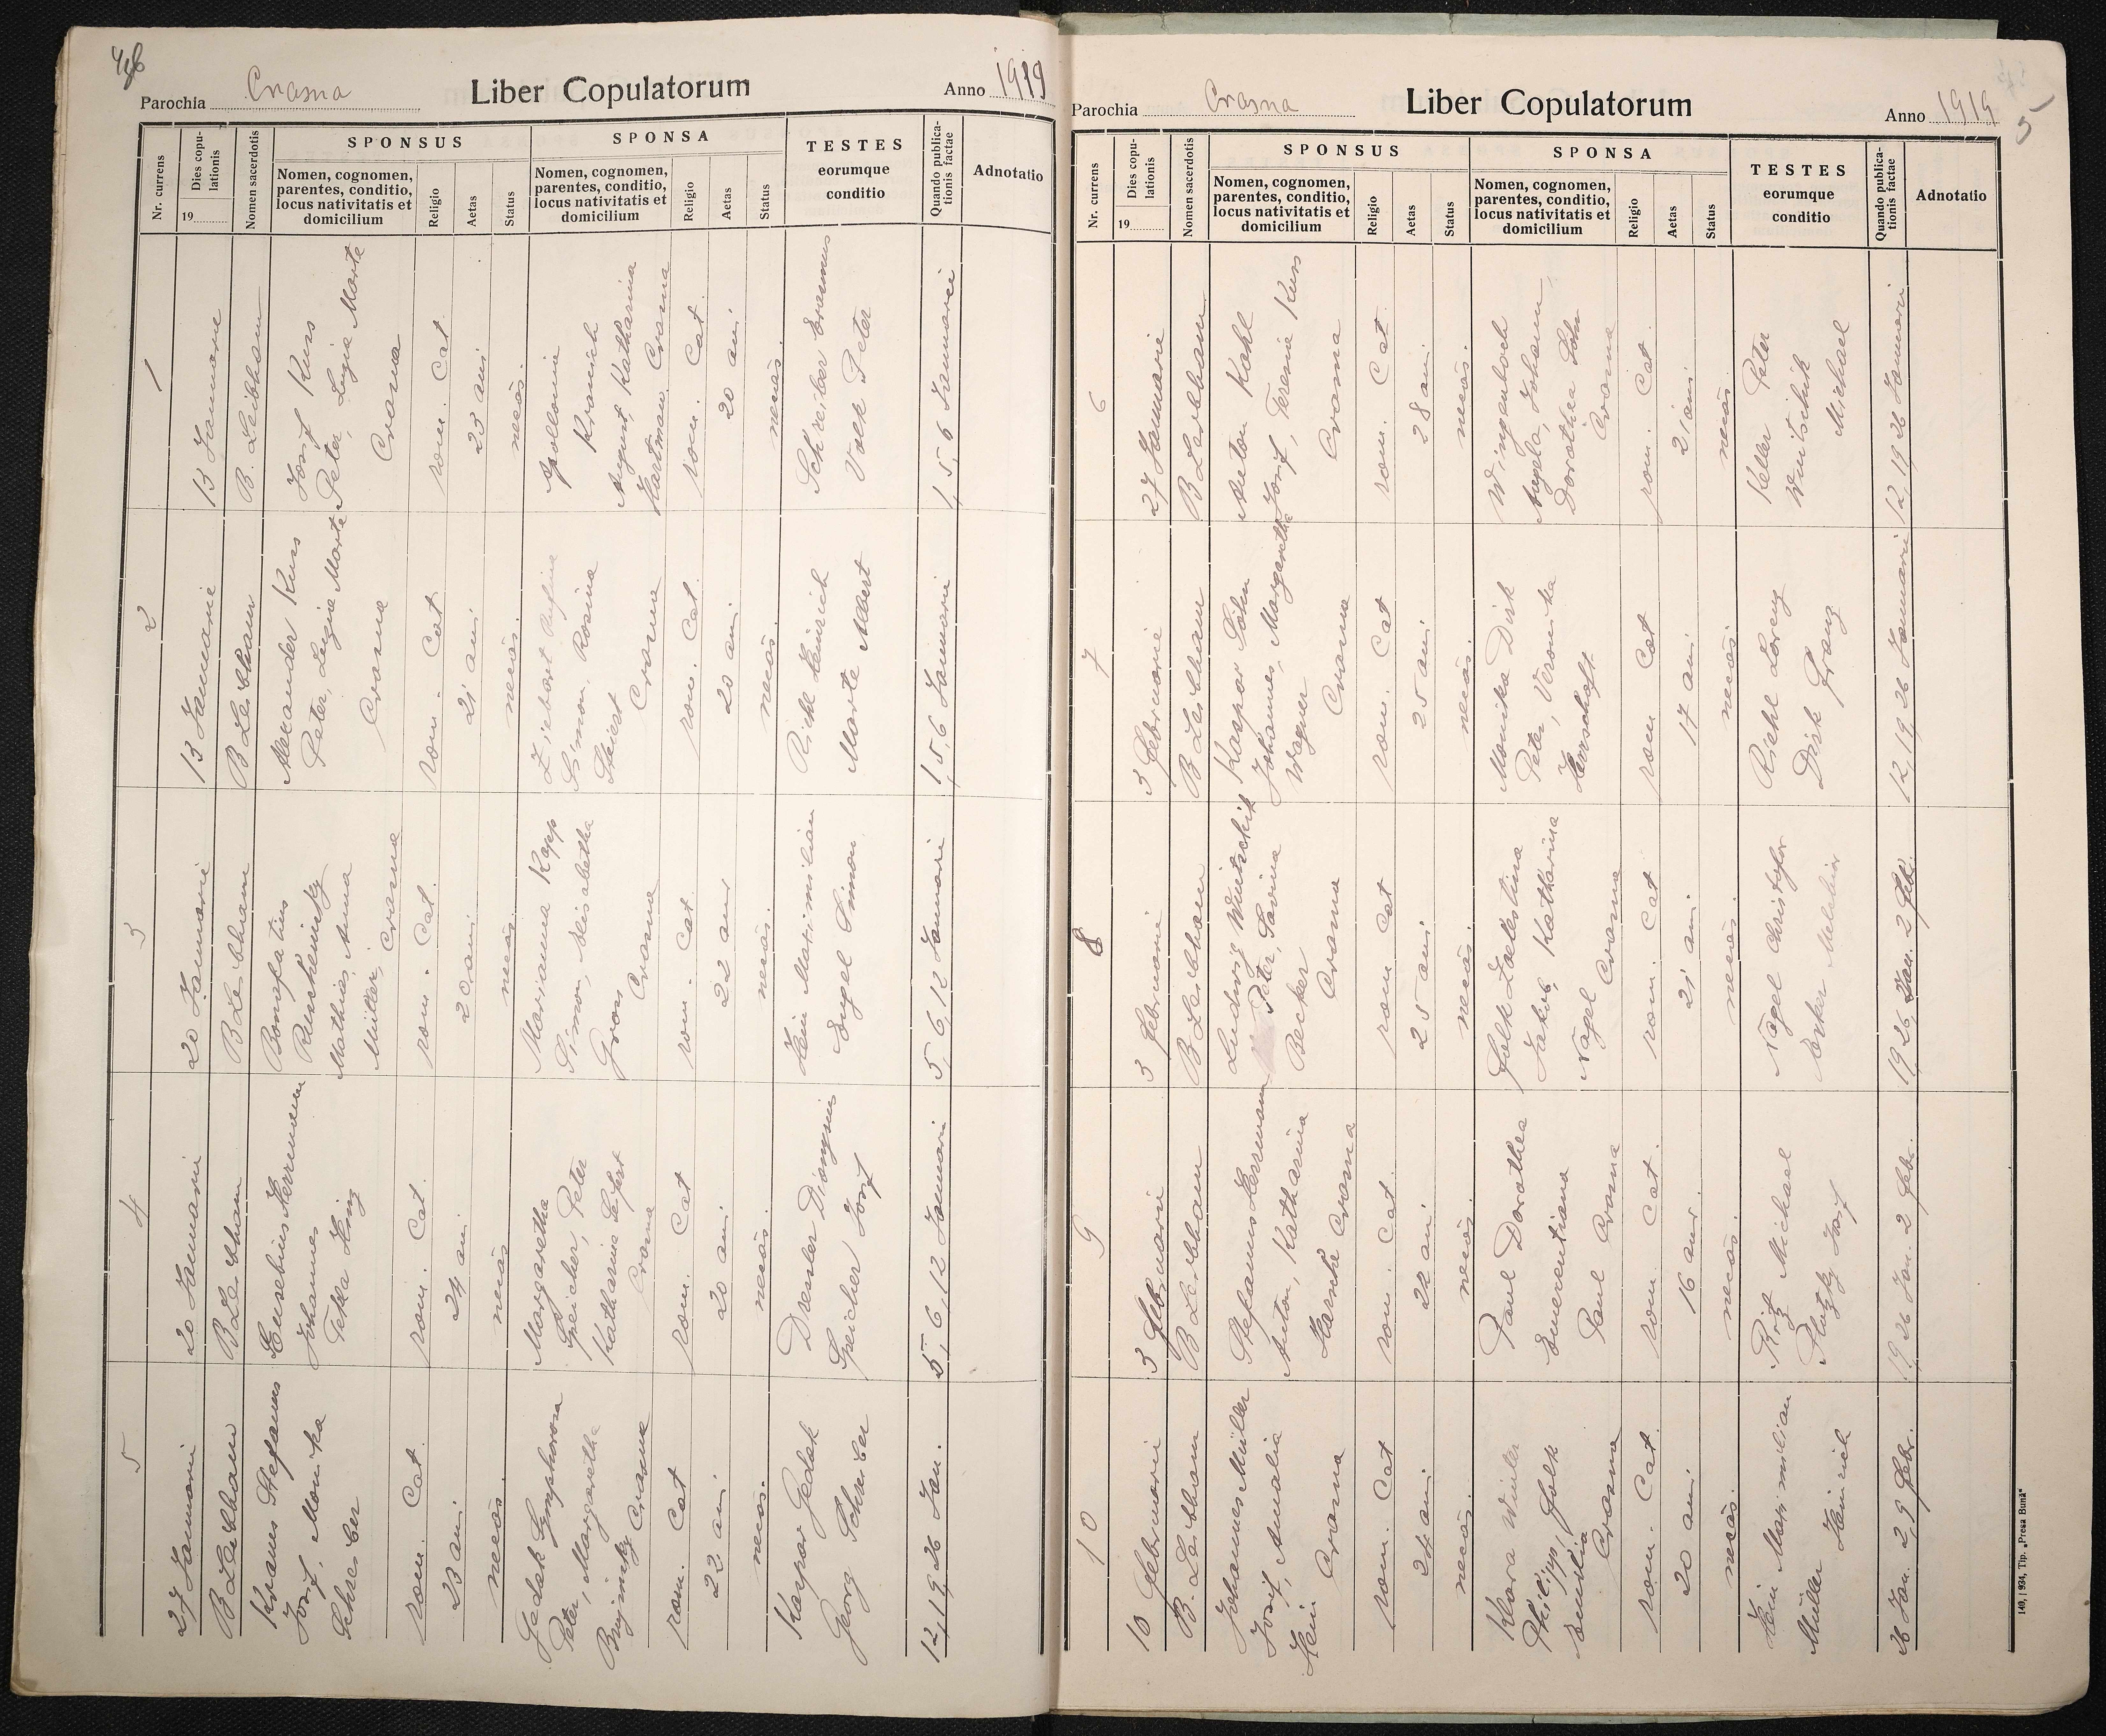 46
Parochia Crasna
Liber Copulatorum
Anno 1919
Nr. currens
Dies copu-
lationis
19
Nomen sacerdotis
SPONSUS
Nomen, cognomen,
parentes, conditio,
locus nativitatis et
domicilium
Religio
Aetas
Status
SPONSA
Nomen, cognomen,
parentes, conditio,
locus nativitatis et
domicilium
Religio
Aetas
Status
TESTES
eorumque
conditio
Quando publica-
tionis factae
Adnotatio
1
13 Januarie
B. Leibham
Josif Kuss
Peter, Luzia Marte
Crasna
rom. Cat.
23 ani
necăs.
Apollonia
Kranich
August, Katharina
Hartman Crasna
rom. Cat.
20 ani
necăs.
Schreiber Erasmus
Volk Peter
1, 5, 6 Januarii
2
13 Januarie
B Leibham
Alexander Kuss
Peter, Luzia Marte
Crasna
rom. Cat
21 ani
necăs.
Ziebart Rufina
Simon, Rosina
Steiert
Crasna
rom. Cat.
20 ani
necăs.
Riehl Heinrich
Marte Albert
1, 5, 6 Januarii
3
20 Januarie
B Leibham
Bonifatius
Ruscheinsky
Mathias, Anna
Müller, Crasna
rom. Cat.
20 ani
necăs.
Marianna Kopp
Simon, Elisabetha
Gross
Crasna
rom. Cat.
22 ani
necăs.
Hein Maximilian
Engel Simon
5, 6, 12 Januarii
4
20 Januarii
B Leibham
Eusebius Herrmann
Johannes
Tekla Hinz
rom. Cat.
24 ani
necăs
Margaretha
Speicher, Peter
Katharina Seifert
Crasna
rom. Cat
20 ani
necăs.
Dressler Dionysius
Speicher Josif
5, 6, 12 Januarii
5
27 Januarii
B Leibham
Kraenes Stefanus
Josif, Monika
Schreiber
rom. Cat.
23 ani
necăs.
Gedak Symphorosa
Peter, Margaretha
Buginsky Crasna
rom. Cat
22 ani
necăs.
Kaspar Gedak
Georg Schreiber
12, 19, 26 Jan.
5
Parochia Crasna
Liber Copulatorum
Anno 1919
Nr. currens
Dies copu-
lationis
19
Nomen sacerdotis
SPONSUS
Nomen, cognomen,
parentes, conditio,
locus nativitatis et
domicilium
Religio
Aetas
Status
SPONSA
Nomen, cognomen,
parentes, conditio,
locus nativitatis et
domicilium
Religio
Aetas
Status
TESTES
eorumque
conditio
Quando publica-
tionis factae
Adnotatio
6
27 Januarie
B Leibham
Anton Kahl
Josif, Frenia Kuss
Crasna
rom. Cat.
28 ani
necăs.
Wingenbach
Angela, Johann,
Dorothea Söhn
Crasna
rom. Cat.
21 ani
necăs
Keller Peter
Winitschik
Michael
12, 19, 26 Januarii
7
3 Februarie
B Leibham
Kaspar Söhn
Johannes, Margaretha
Wagner
Crasna
rom. Cat
25 ani
necăs.
Monika Dirk
Peter, Veronika
Herrschaft
rom Cat
17 ani
necăs.
Riehl Lorenz
Dirk Franz
12, 19, 26 Januarii
8
3 Februarii
B Leibham
Ludwig Winitschik
Peter, Savina
Becker
Crasna
rom Cat
25 ani
necăs.
Folk Zölestina
Jakob, Katharina
Nagel Crasna
rom. Cat
21 ani
necăs.
Nagel Christofor
Erker Melchior
19, 26, Jan. 2 Feb.
9
3 Februarii
B Leibham
Stefanus Herrmann
Anton, Katharina
Harsche Crasna
rom. Cat.
22 ani
necăs.
Paul Dorothea
Emerentiana
Paul Crasna
rom. Cat.
16 anr.
necăs.
Ritz Michael
Plotzky Josif
19, 26 Jan. 2 Febr.
10
10 Februarie
B. Leibham
Johannes Müller
Josif, Amalia
Hein Crasna
rom. Cat
24 ani
necăs.
Klara Winter
Philipp, Folk
Emilia Crasna
rom. Cat.
20 ani
necăs.
Hein Maximilian
Müller Heinrich
26 Jan. 2, 9 Febr.
140, 1934, Tip. „Presa Bună"